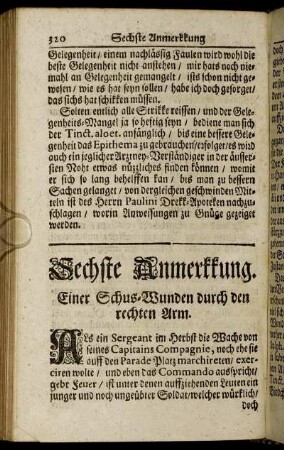 320 Sechste Anmerkkung
Gelegenheit / einem nachlässig Faulen wird wohl die
beste Gelegenheit nicht anstehen / mir hats noch nie-
mahl an Gelegenheit gemangelt / ists schon nicht ge-
wesen / wie es hat seyn sollen / habe ich doch gesorget /
das sichs hat schikken müssen.
Solten entlich alle Strikke reissen / und der Gele-
genheits-Mangel ja so hefftig seyn / bediene man sich
der Tinct. aloet. anfänglich / bis eine bessere Gele-
genheit das Epithema zu gebrauchen / erfolget / es wird
auch ein jeglicher Artzney-Verständiger in der äusser-
sten Noht etwas nützliches finden können / womit
er sich so lang behelffen kan / bis man zu bessern
Sachen gelanget / von dergleichen geschwinden Mit-
teln ist des Herrn Paulini Drekk-Apoteken nachzu-
schlagen / worin Anweisungen zu Gnüge gezeiget
werden.
Sechste Anmerkkung.
Einer Schus-Wunden durch den
rechten Arm.
Als ein Sergeant im Herbst die Wache von
seines Capitains Compagnie, noch ehe sie
auff den Parade Platz marchireten / exer-
ciren wolte / und eben das Commando ausspricht /
gebt Feuer / ist unter denen auffziehenden Leuten ein
junger und noch ungeübter Soldat / welcher würklich /
doch